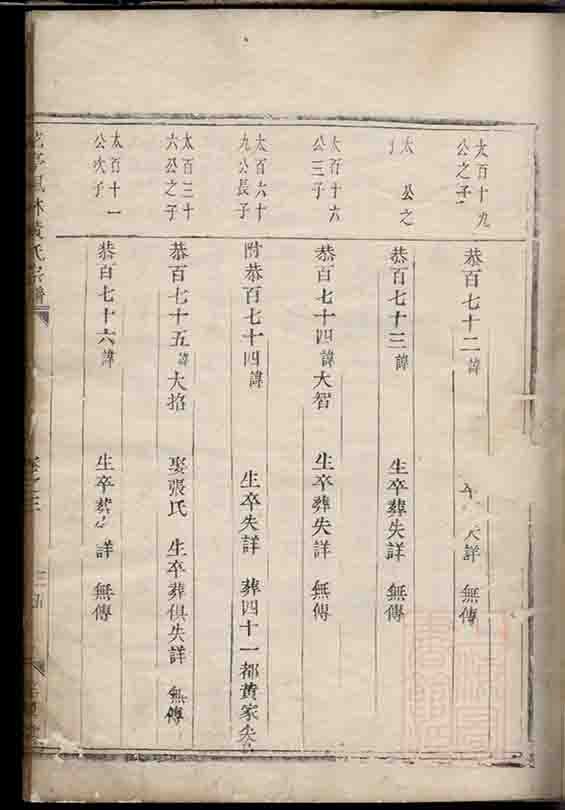 太百十九
公之子
恭百七十二 諱
失詳 無傳
太 公之
恭百七十三 諱
生卒葬失詳 無傳
太百十六
公三子
恭百七十四 諱 大智
生卒葬失詳 無傳
太百六十
九公長子
附恭百七十四 諱
生卒失詳 葬四十一都黃家尖
太百三十
六公之子
恭百七十五 諱 大掐
娶張氏 生卒葬俱失詳 無傳
太百十一
公次子
恭百七十六 諱
生卒葬 詳 無傳
林黃氏宗譜
卷之三